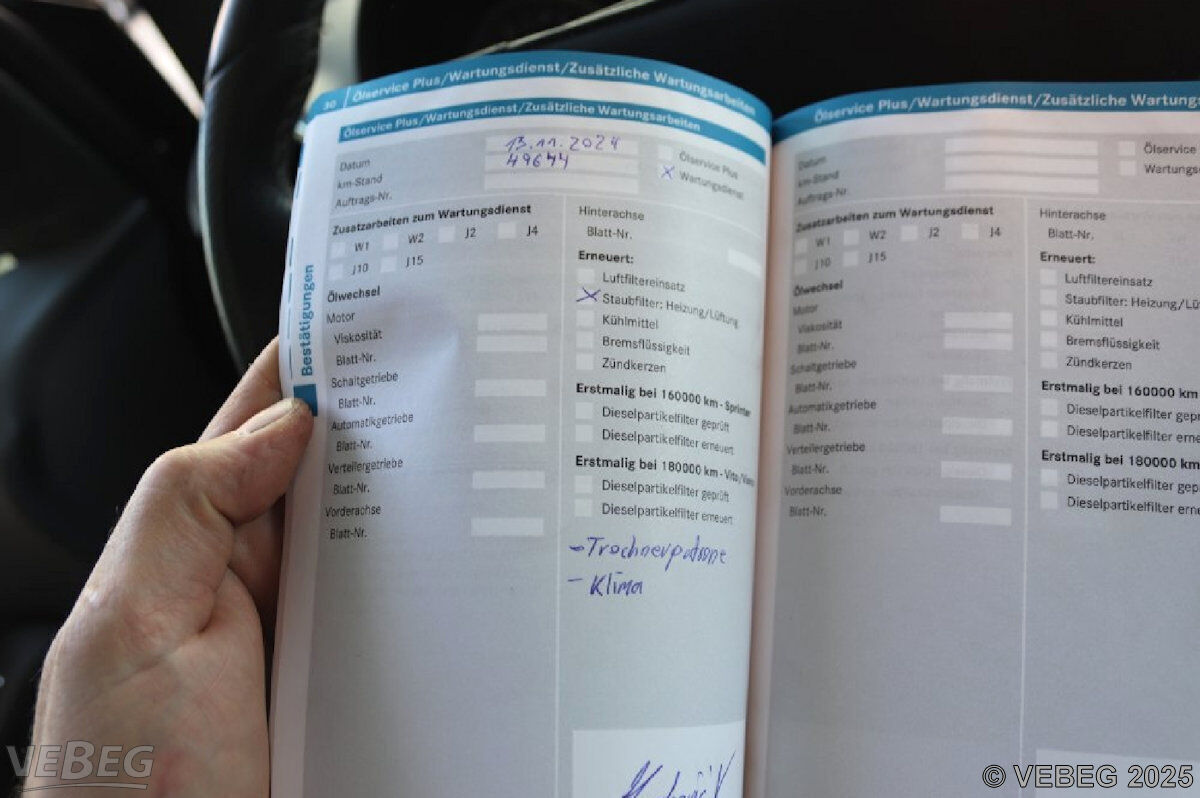 30 Ölservice Plus/Wartungsdienst/Zusätzliche Wartungsarbeiten
Ölservice Plus/Wartungsdienst/Zusätzliche Wartungsarbeiten
Datum 13.11.2024
km-Stand 49644
Auftrags-Nr.
Ölservice Plus
X Wartungsdienst
Zusatzarbeiten zum Wartungsdienst
W1 W2 J2 J4
J10 J15
Ölwechsel
Motor
Viskosität
Blatt-Nr.
Schaltgetriebe
Blatt-Nr.
Automatikgetriebe
Blatt-Nr.
Verteilergetriebe
Blatt-Nr.
Vorderachse
Blatt-Nr.
Hinterachse
Blatt-Nr.
Erneuert:
Luftfiltereinsatz
X Staubfilter: Heizung/Lüftung
Kühlmittel
Bremsflüssigkeit
Zündkerzen
Erstmalig bei 160000 km - Sprinter
Dieselpartikelfilter geprüft
Dieselpartikelfilter erneuert
Erstmalig bei 180000 km - Vito/
Dieselpartikelfilter geprüft
Dieselpartikelfilter erneuert
- Trochnerpatrone
- Klima
Bestätigungen
Ölservice Plus/Wartungsdienst/Zusätzliche Wartungs
Datum
km-Stand
Auftrags-Nr.
Ölservice
Wartungs
Zusatzarbeiten zum Wartungsdienst
W1 W2 J2 J4
J10 J15
Ölwechsel
Motor
Viskosität
Blatt-Nr.
Schaltgetriebe
Blatt-Nr.
Automatikgetriebe
Blatt-Nr.
Verteilergetriebe
Blatt-Nr.
Vorderachse
Blatt-Nr.
Hinterachse
Blatt-Nr.
Erneuert:
Luftfiltereinsatz
Staubfilter: Heizung/Lü
Kühlmittel
Bremsflüssigkeit
Zündkerzen
Erstmalig bei 160000 km
Dieselpartikelfilter gepr
Dieselpartikelfilter erne
Erstmalig bei 180000 km
Dieselpartikelfilter gep
Dieselpartikelfilter erne
VEBEG
© VEBEG 2025